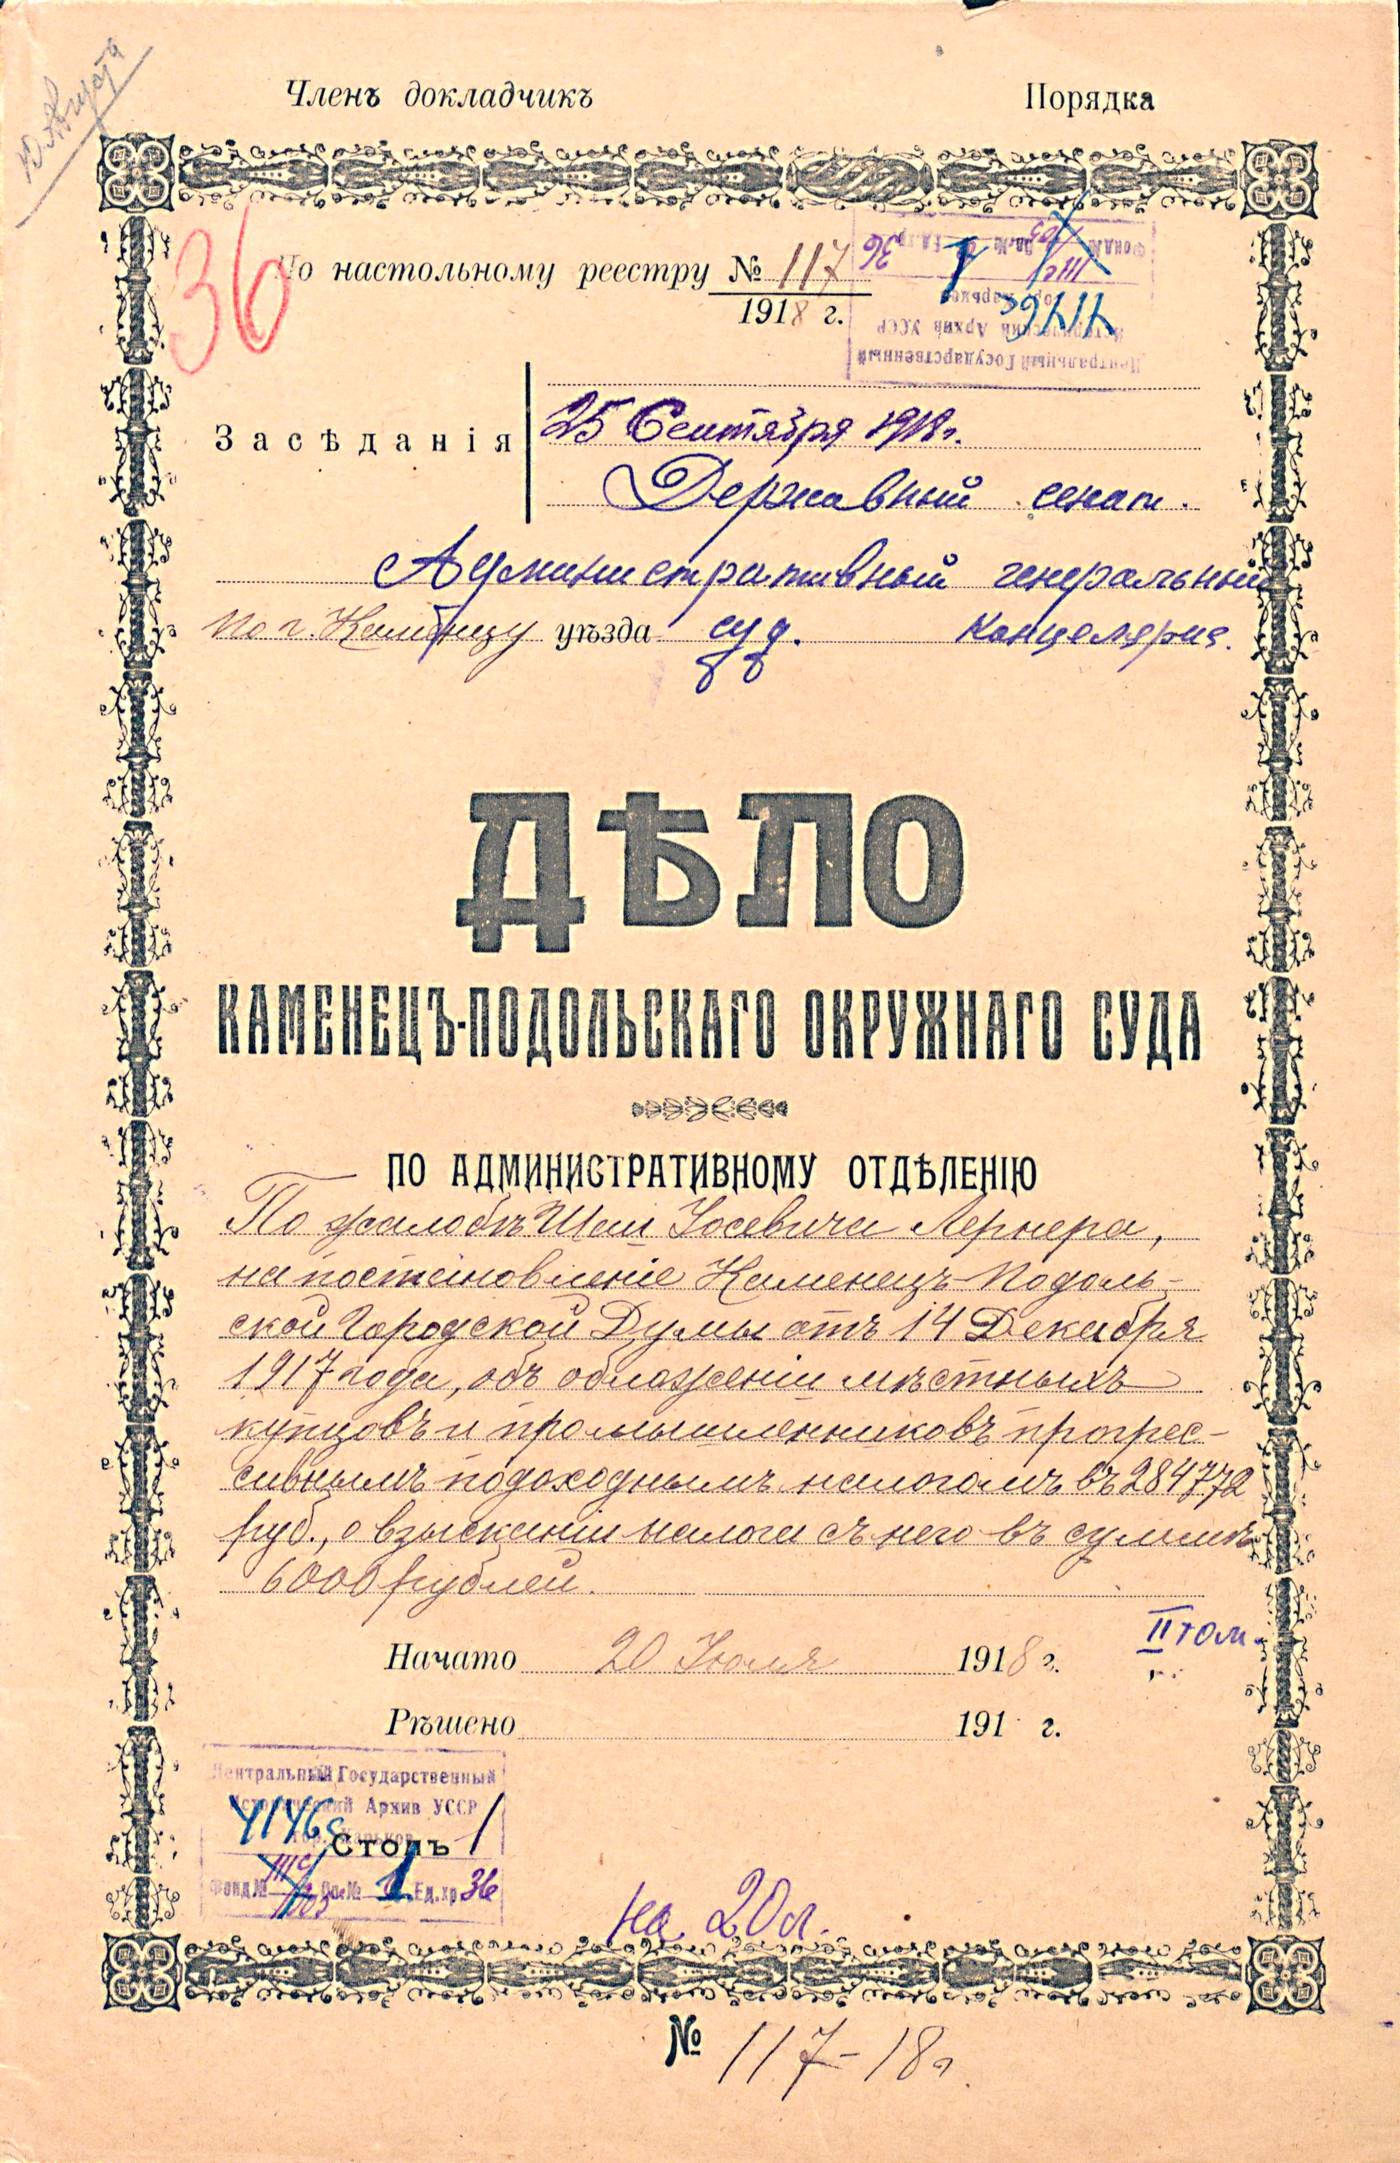 Членъ докладчикъ
Порядка
36
По настольному реестру № 117
1918 г.
Центральный Государственный
Исторический Архив УССР
гор. Харьков
Фонд № Оп. № 1 Ед. хр. 36
Засѣданія
25 Сентября 1918 г.
Державный сенат.
Административный генеральный
По г. Каменцу уѣзда суд. Канцелярия.
ДѢЛО
КАМЕНЕЦЪ-ПОДОЛЬСКАГО ОКРУЖНАГО СУДА
ПО АДМИНИСТРАТИВНОМУ ОТДѢЛЕНІЮ
По жалобѣ Шаи Іосевича Лернера,
на постановленіе Каменецъ-Подоль-
ской Городской Думы отъ 14 Декабря
1917 года, объ обложеніи мѣстныхъ
купцовъ и промышленниковъ прогрес-
сивнымъ подоходнымъ налогомъ въ 284772
руб., о взысканіи налога съ него въ суммѣ
6000 рублей.
II том.
Начато 20 Іюля 1918 г.
Рѣшено 191 г.
Центральный Государственный
Исторический Архив УССР
гор. Харьков
Столъ 1
Фонд № Оп. № 1 Ед. хр. 36
на 20 л.
№ 117-18 г.